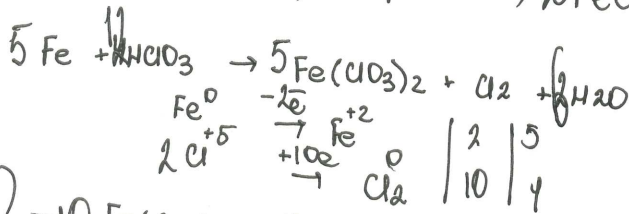 5 Fe + 12HClO3 → 5Fe(ClO3)2 + Cl2 + 6H2O
Fe⁰ -2e̅ → Fe⁺² | 2 | 5
2Cl⁺⁵ +10e → Cl2⁰ | 10 | 1